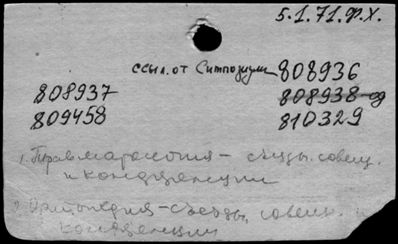 5.1.71.Ф.Х.
ссыл. от Симпозиум 808936
808937 808938-од
809458 810329
1. Травматология - съезды, совещ.
и конференции
2. Ортопедия - съезды, совещ. и
конференции